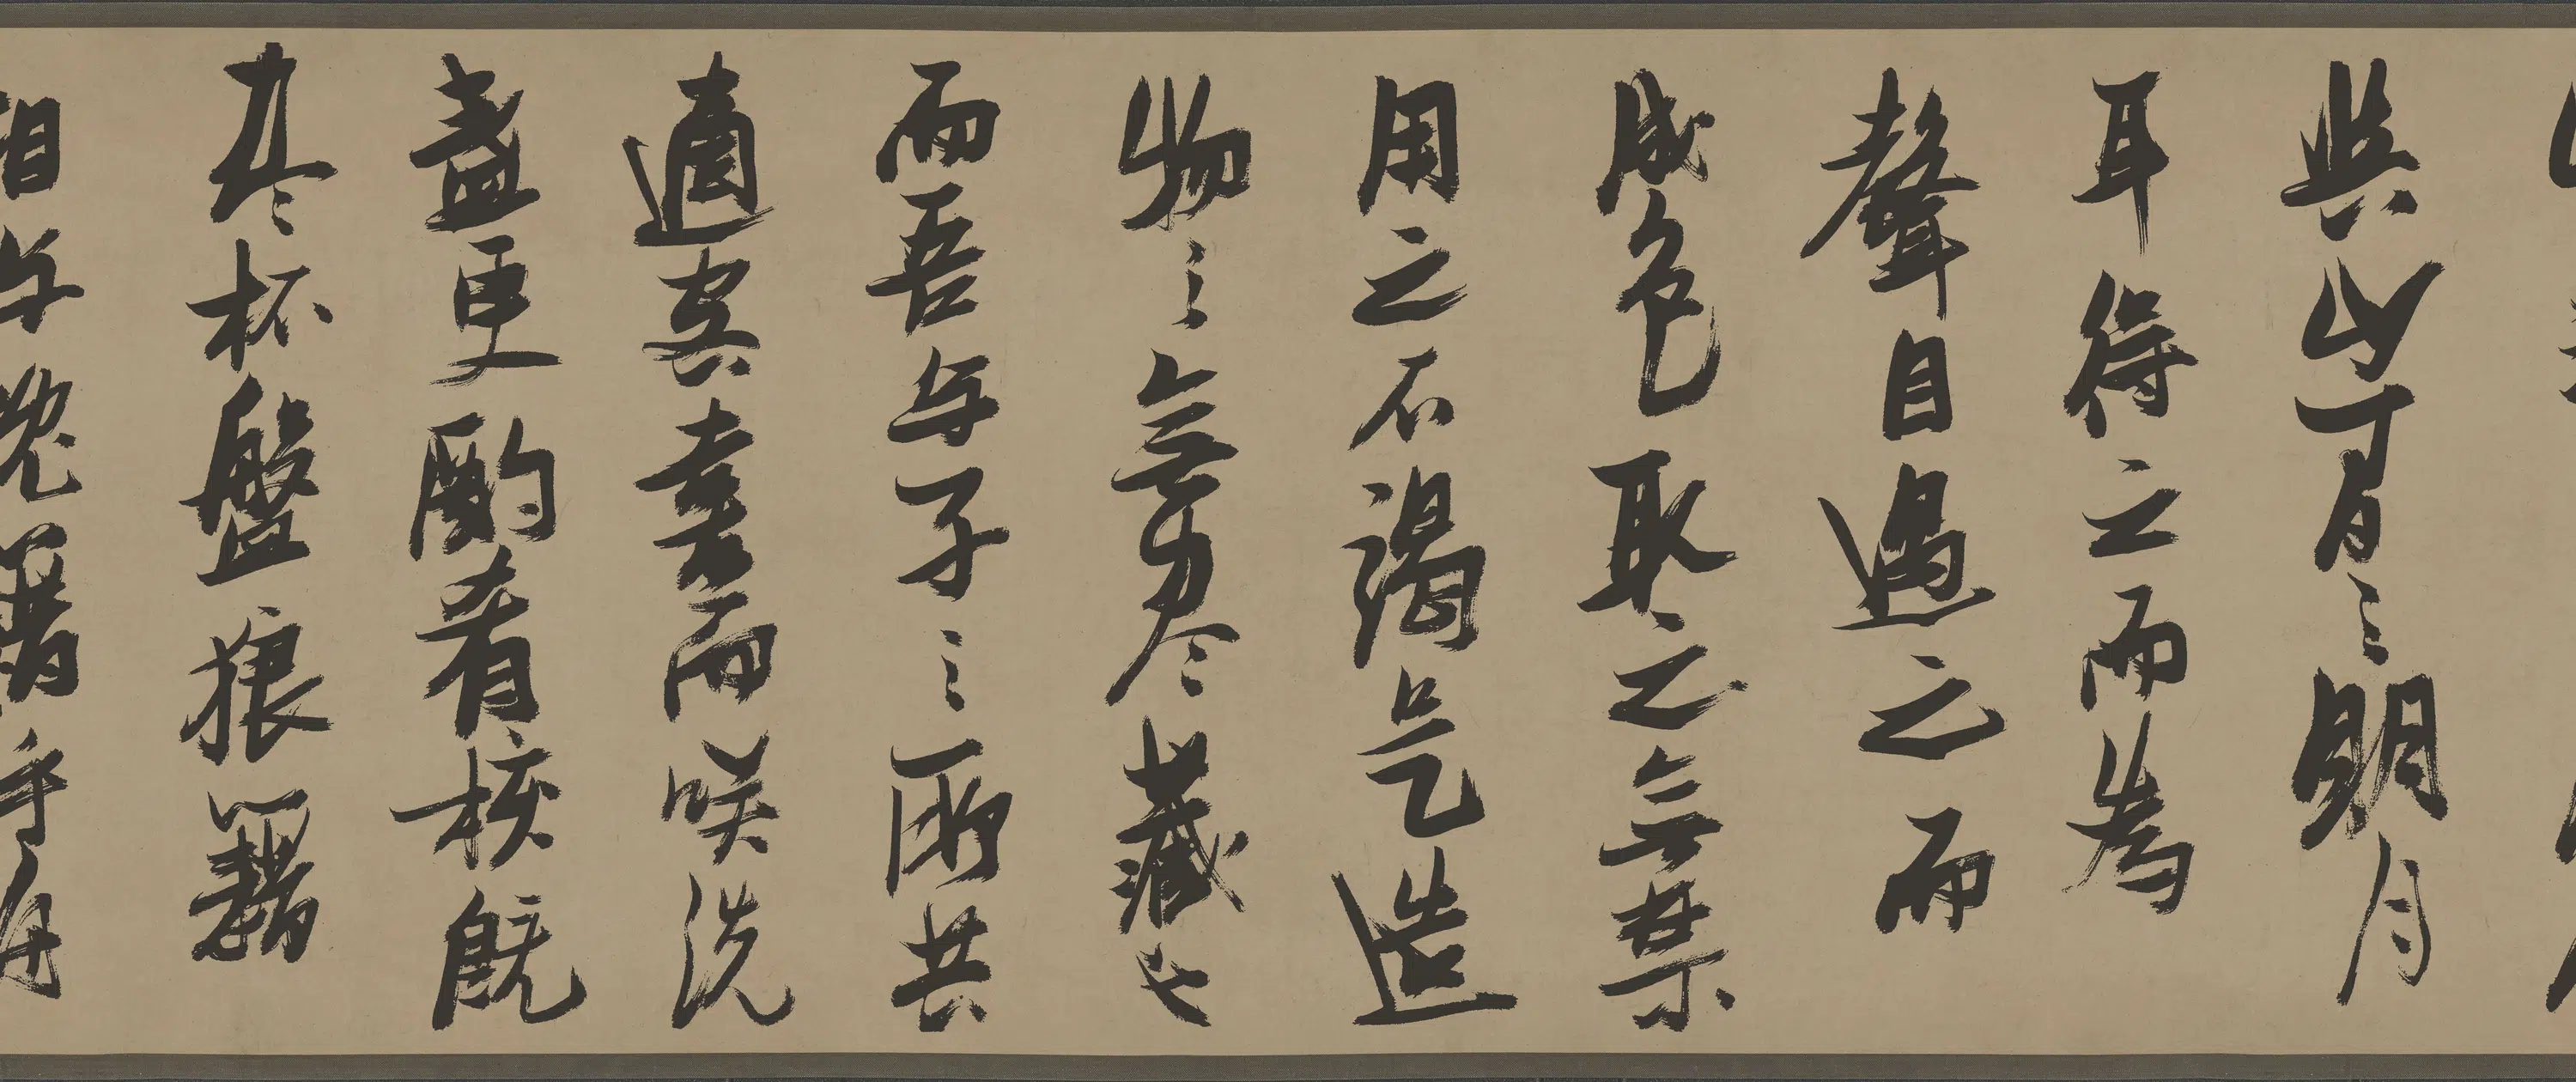 與山間之明月
耳得之而為
聲目遇之而
成色取之無禁
用之不竭是造
物之無尽藏也
而吾与子之所共
適客喜而咲洗
盞更酌肴核既
尽杯盤狼籍
相与枕藉乎舟